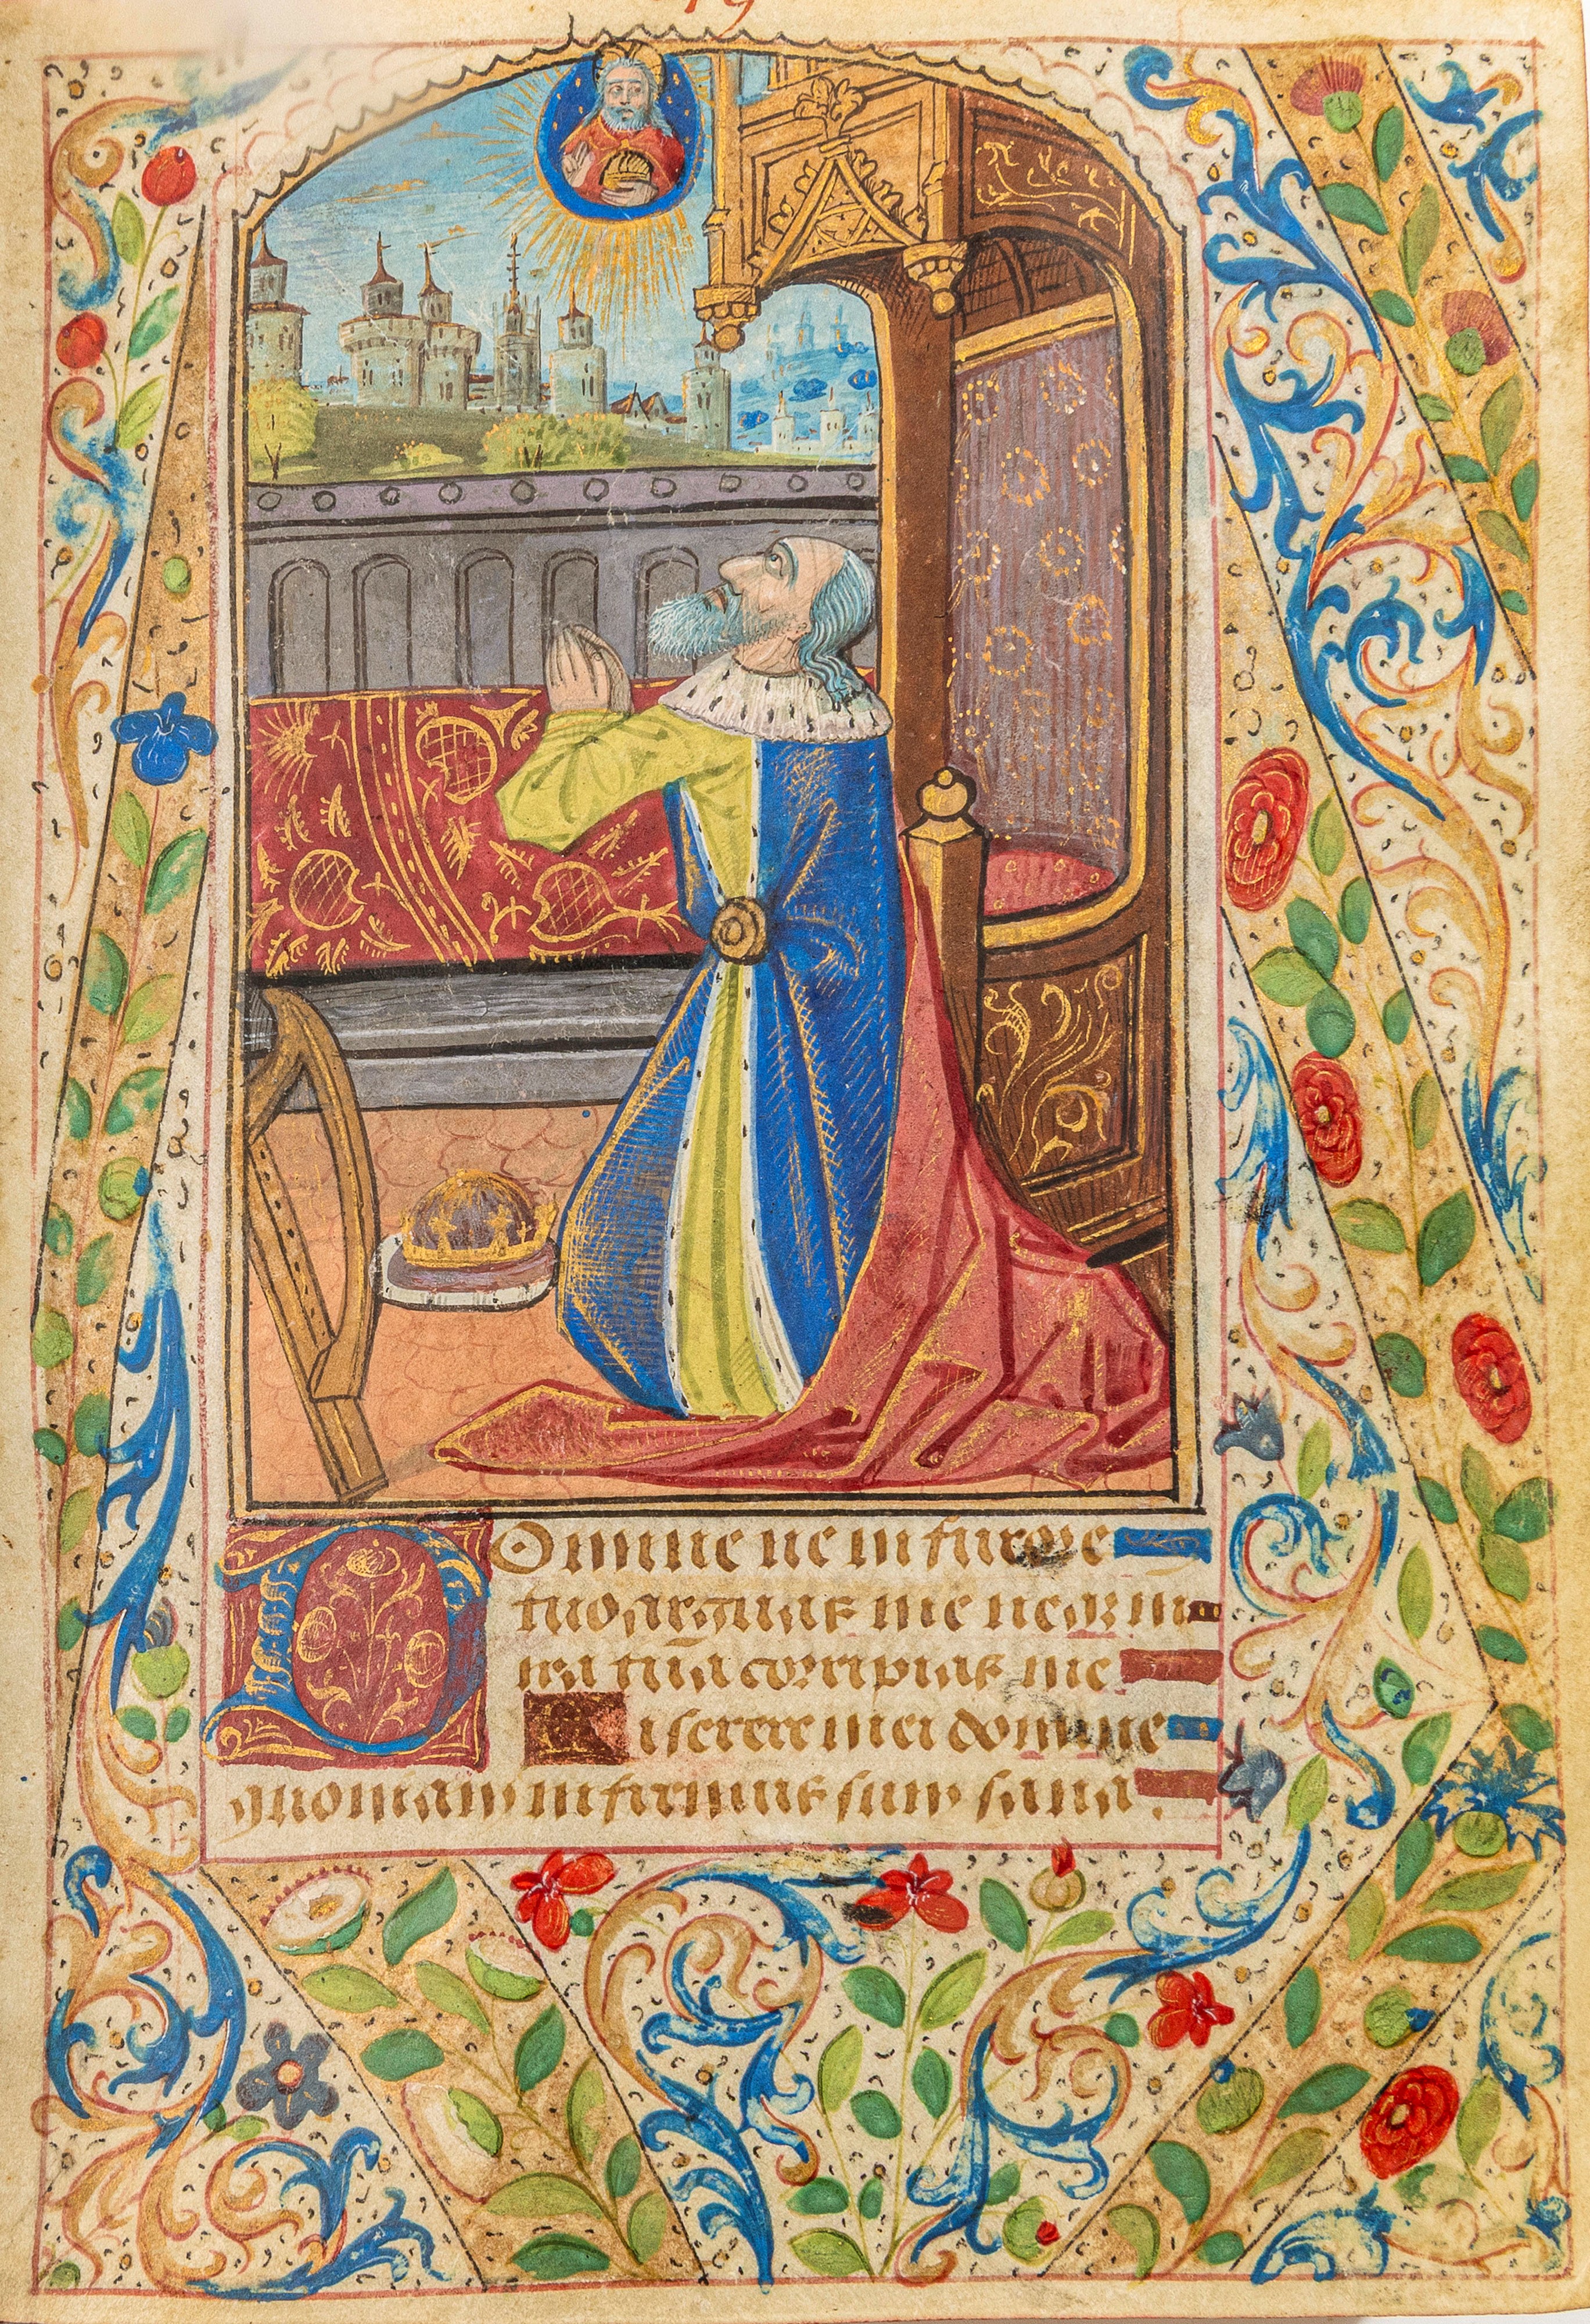 DOmine ne in furore
tuo arguas me neqz in
ira tua corripias me
Miserere mei domine
quoniam infirmus sum sana.